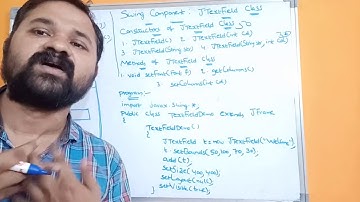 Swing Component : JTextField Class
Constructors of JTextField Class
1. JTextField() 2. JTextField(int col)
3. JTextField(String str) 4. JTextField(String str, int col)
Methods of JTextField Class
1. void setFont(Font f) 2. getColumns()
3. setColumns(int col)
program:-
import javax.swing.*;
Public class TextFieldDemo extends JFrame
{
TextFieldDemo()
{
JTextField t=new JTextField("Welcome");
t.setBounds(50,100,70,30);
add(t);
setSize(400,400);
setLayout(null);
setVisible(true);